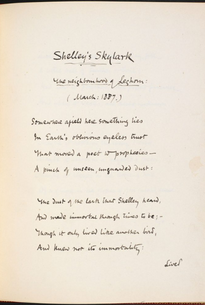 Shelley's Skylark
(The neighbourhood of Leghorn:
(March: 1887.)
Somewhere afield here something lies
In Earth's oblivious eyeless trust
That moved a poet to prophecies—
A pinch of unseen, unguarded dust:
The dust of the lark that Shelley heard,
And made immortal through times to be;—
Though it only lived like another bird,
And knew not its immortality:
Lived